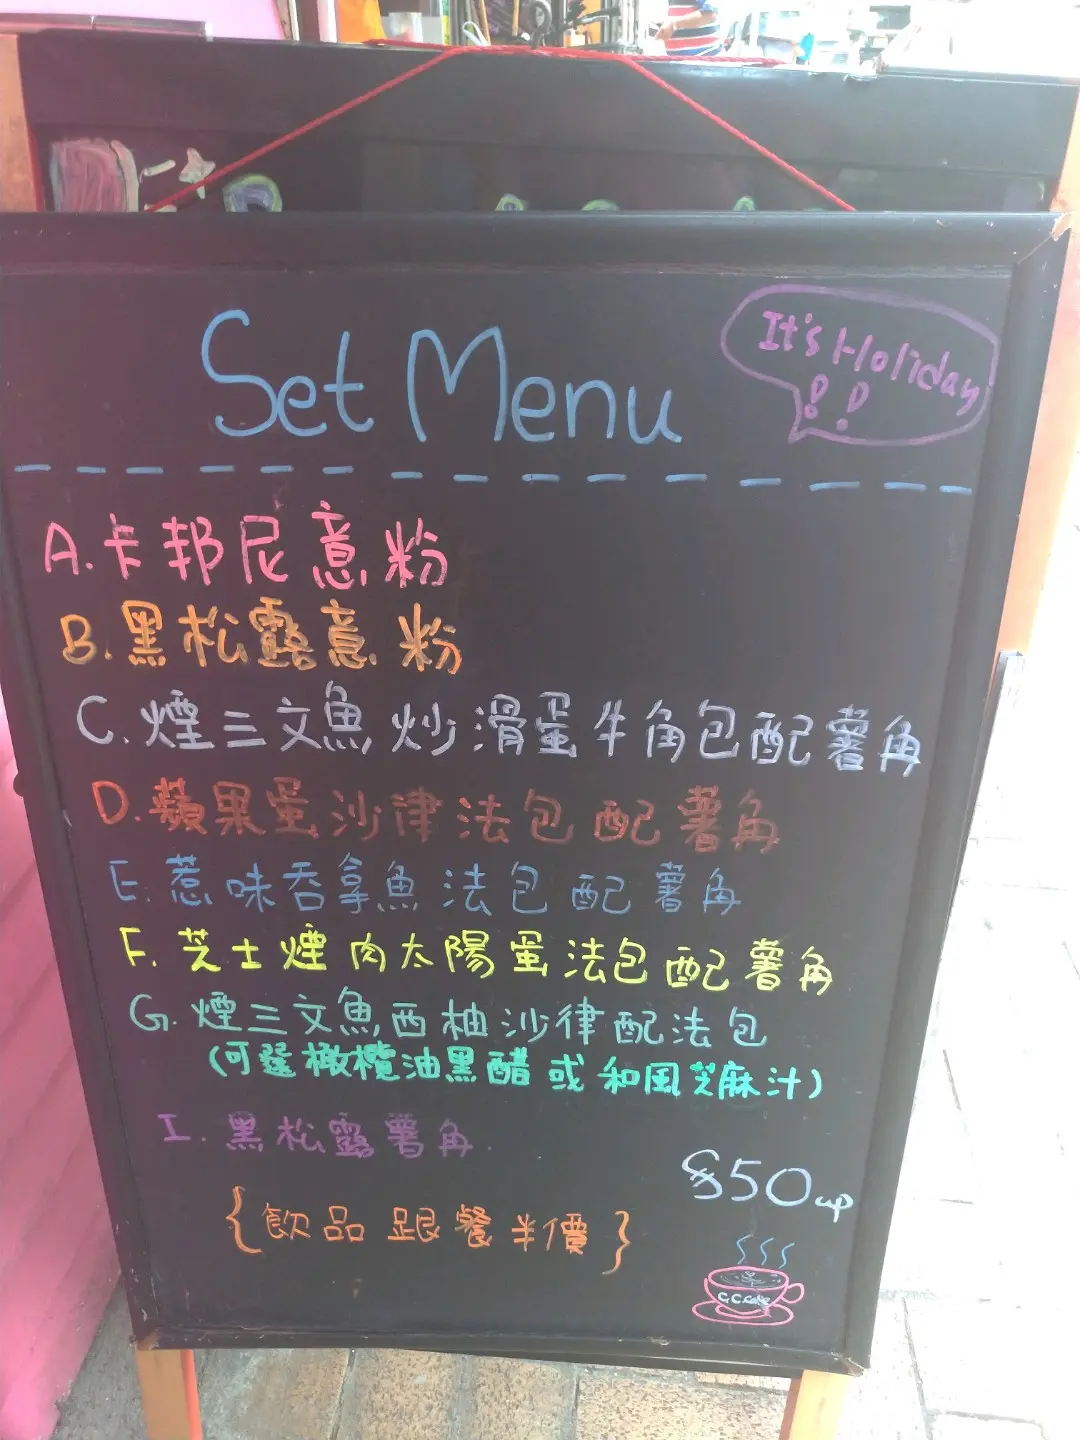 It's Holiday
!!
Set Menu
A.卡邦尼意粉
B.黑松露意粉
C.煙三文魚炒滑蛋牛角包配薯角
D.蘋果蛋沙律法包配薯角
E.惹味吞拿魚法包配薯角
F.芝士煙肉太陽蛋法包配薯角
G.煙三文魚西柚沙律配法包
(可選橄欖油黑醋或和風芝麻汁)
I.黑松露薯角
$50up
{飲品跟餐半價}